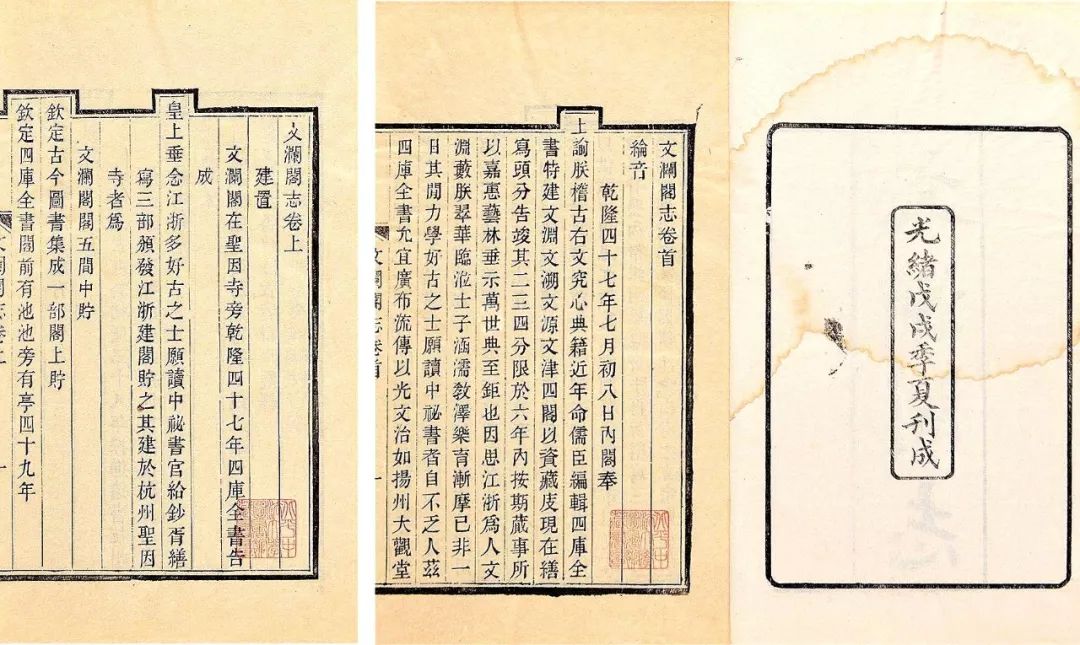 光緒戊戌季夏刊成
文瀾閣志卷首
綸音
乾隆四十七年七月初八日內閣奉
上諭朕稽古右文究心典籍近年命儒臣編輯四庫全
書特建文淵文溯文源文津四閣以資藏庋現在繕
寫頭分告竣其二三四分限於六年內按期蕆事所
以嘉惠藝林垂示萬世典至鉅也因思江浙爲人文
淵藪朕翠華臨涖士子涵濡教澤樂育漸摩已非一
日其閒力學好古之士願讀中祕書者自不乏人茲
四庫全書允宜廣布流傳以光文治如揚州大觀堂
文瀾閣志卷首 一
文瀾閣志卷上
建置
文瀾閣在聖因寺旁乾隆四十七年四庫全書告
成
皇上垂念江浙多好古之士願讀中祕書官給鈔胥繕
寫三部頒發江浙建閣貯之其建於杭州聖因
寺者爲
文瀾閣閣五間中貯
欽定古今圖書集成一部閣上貯
欽定四庫全書閣前有池池旁有亭四十九年
文瀾閣志卷上 一